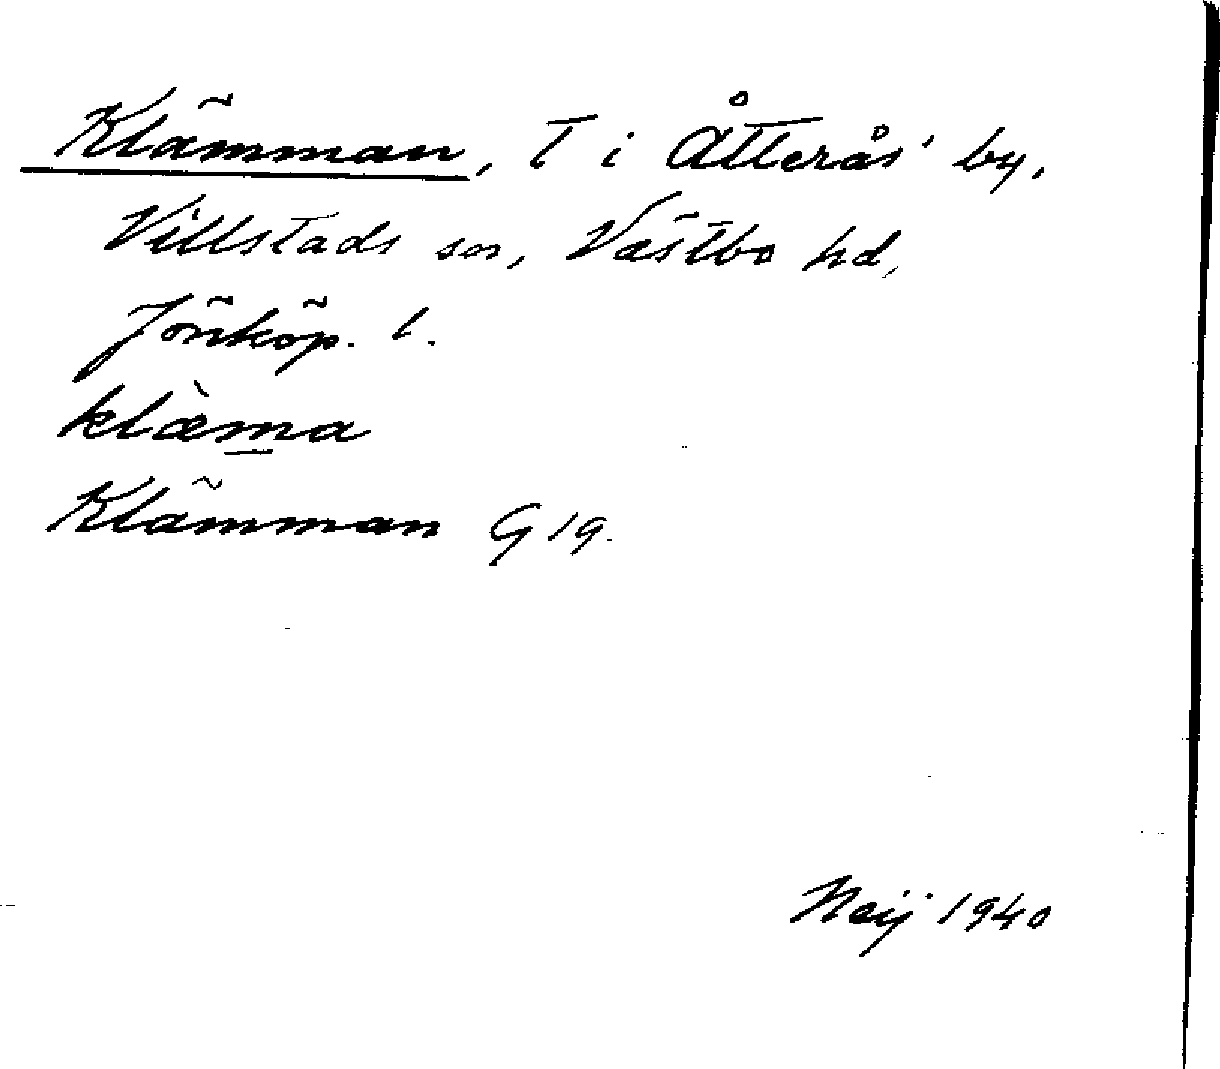 Klämman, T i Åtterås' by,
Villstads sn, Västbo hd,
Jönköp. l.
klæ̀m̲a
Klämman G 19.
Neij 1940